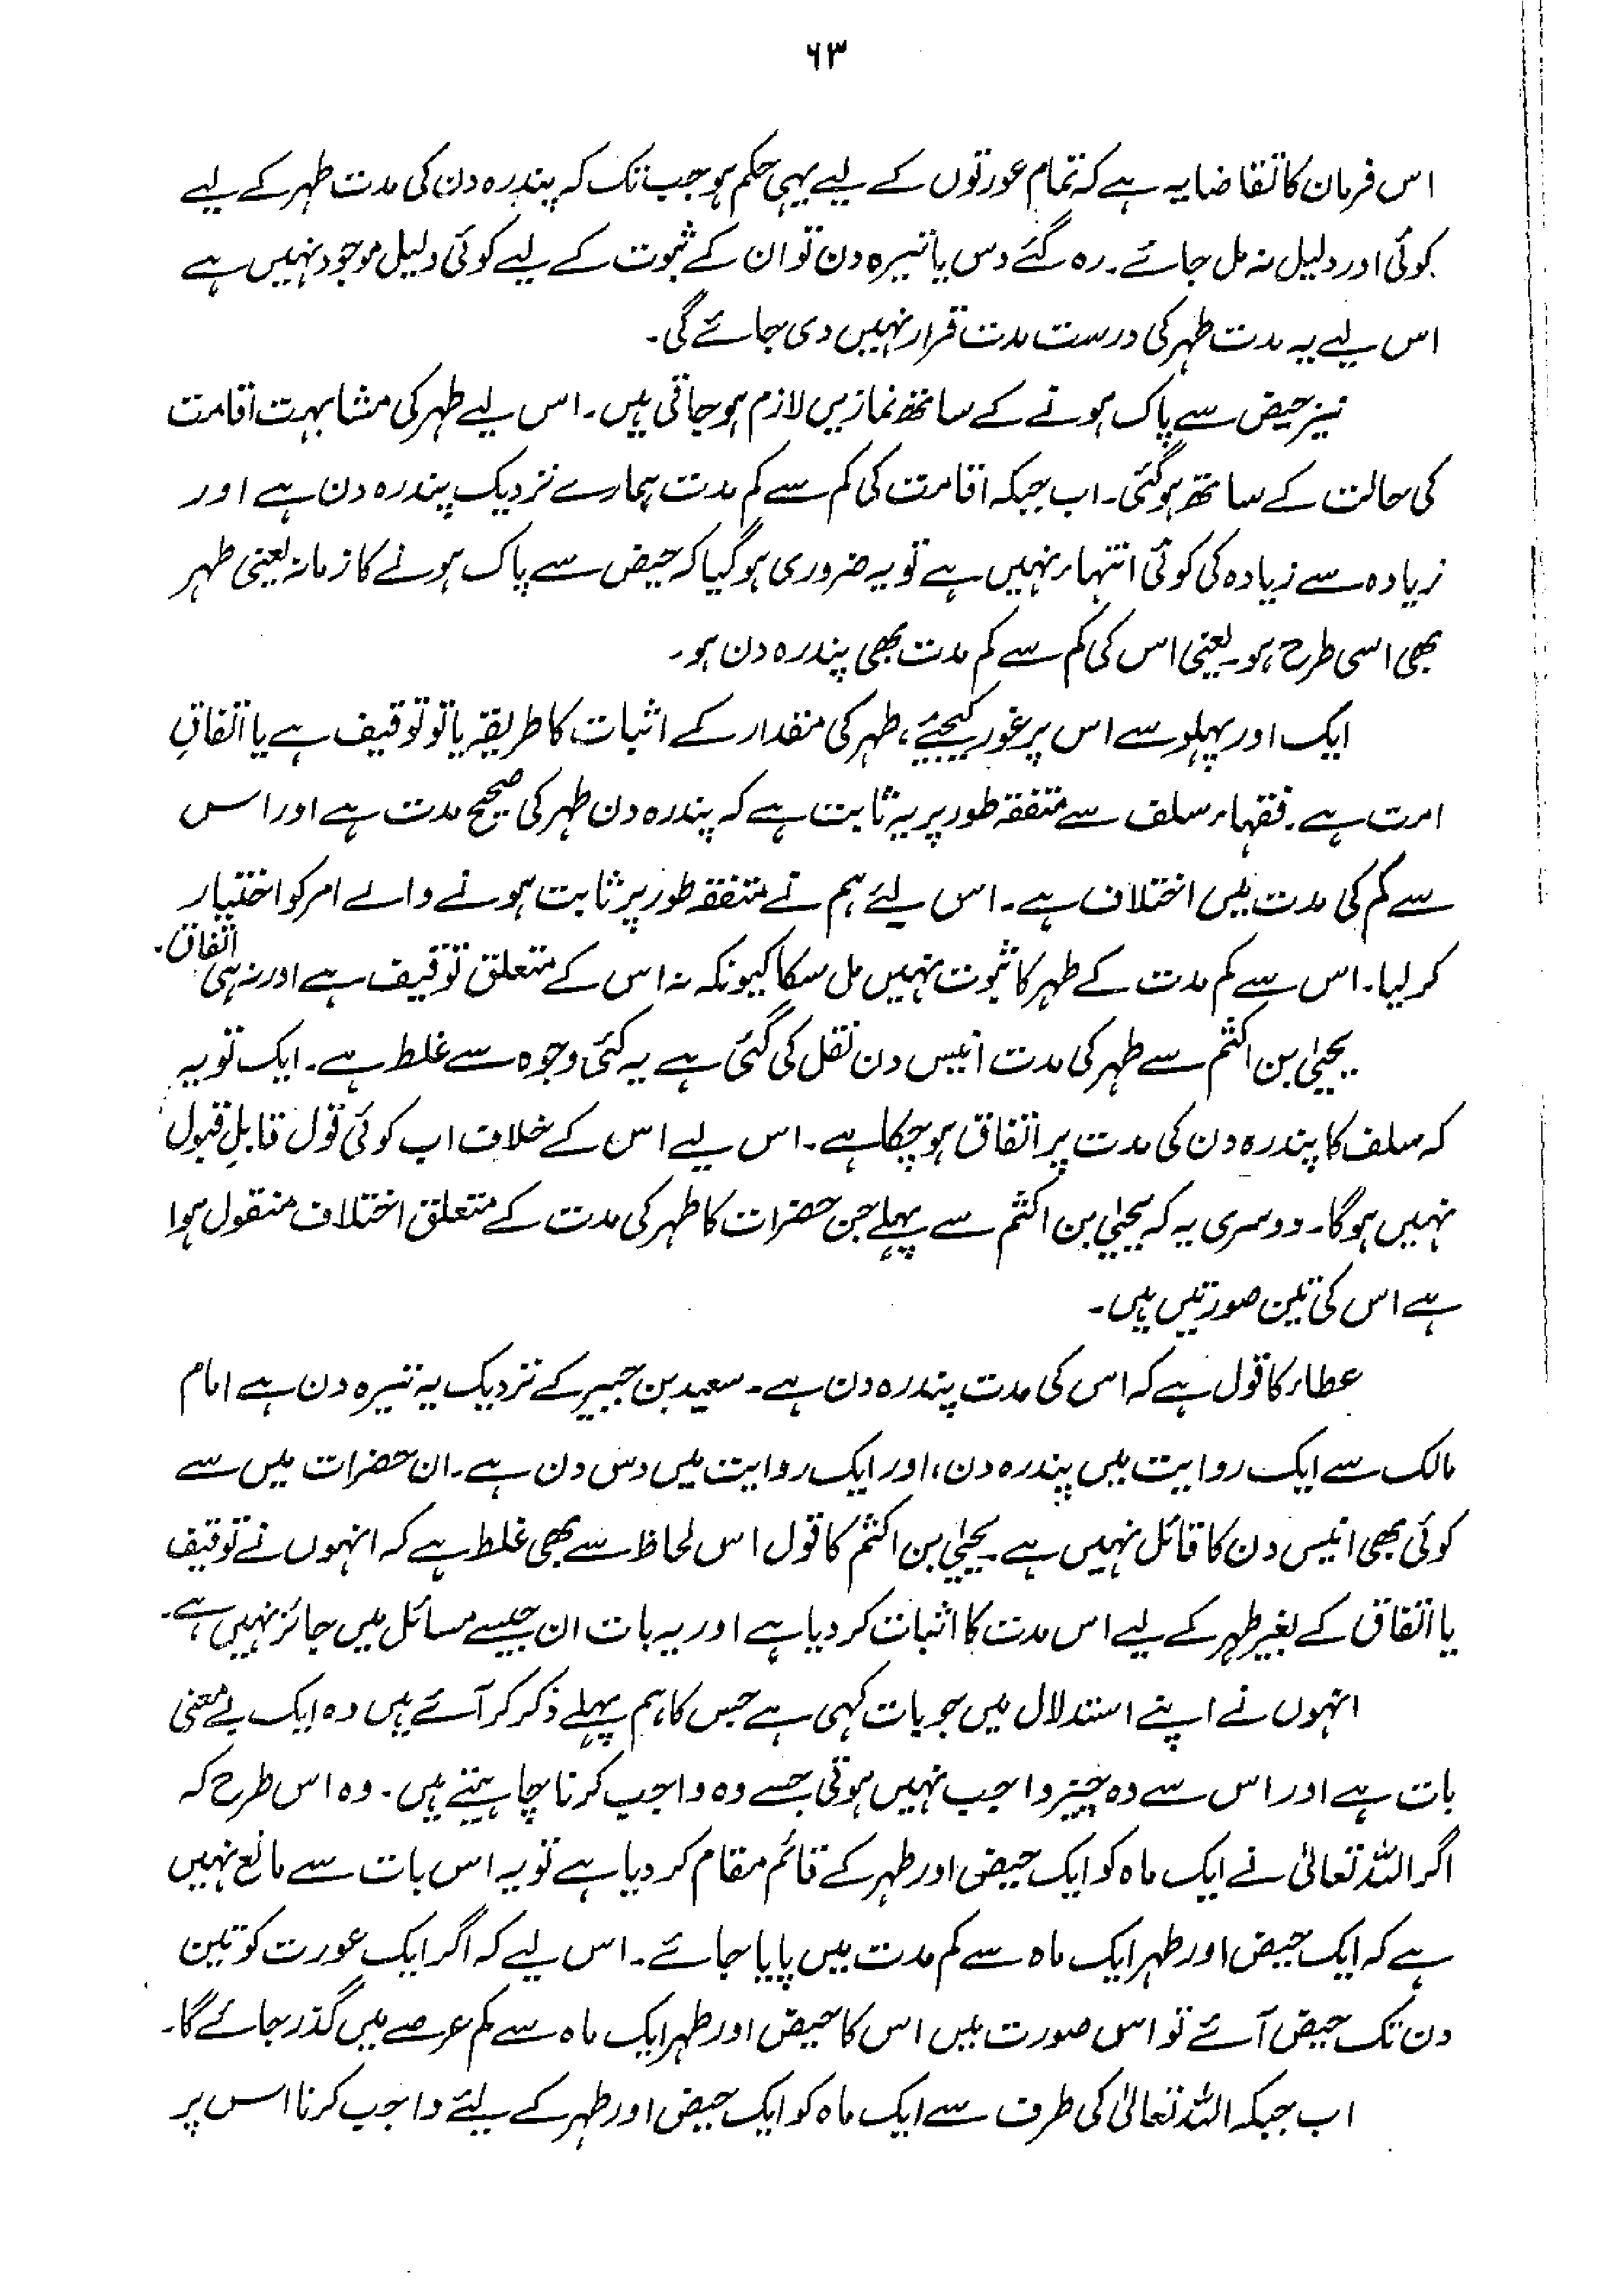 ۶۳
اس فرمان کا تقاضا یہ ہے کہ تمام عورتوں کے لیے یہی حکم ہو جب تک کہ پندرہ دن کی مدت طہر کے لیے
کوئی اور دلیل نہ مل جائے۔ رہ گئے دس یا تیرہ دن تو ان کے ثبوت کے لیے کوئی دلیل موجود نہیں ہے
اس لیے یہ مدت طہر کی درست مدت قرار نہیں دی جائے گی۔
نیز حیض سے پاک ہونے کے ساتھ نمازیں لازم ہو جاتی ہیں۔ اس لیے طہر کی مشابہت اقامت
کی حالت کے ساتھ ہو گئی۔ اب جبکہ اقامت کی کم سے کم مدت ہمارے نزدیک پندرہ دن ہے اور
زیادہ سے زیادہ کی کوئی انتہاء نہیں ہے تو یہ ضروری ہو گیا کہ حیض سے پاک ہونے کا زمانہ یعنی طہر
بھی اسی طرح ہو۔ یعنی اس کی کم سے کم مدت بھی پندرہ دن ہو۔
ایک اور پہلو سے اس پر غور کیجئے، طہر کی مقدار کے اثبات کا طریقہ یا تو توقیف ہے یا اتفاقِ
امت ہے۔ فقہاء سلف سے متفقہ طور پر یہ ثابت ہے کہ پندرہ دن طہر کی صحیح مدت ہے اور اس
سے کم کی مدت میں اختلاف ہے۔ اس لیئے ہم نے متفقہ طور پر ثابت ہونے والے امر کو اختیار
کر لیا۔ اس سے کم مدت کے طہر کا ثبوت نہیں مل سکا کیونکہ نہ اس کے متعلق توقیف ہے اور نہ ہی اتفاق۔
یحییٰ بن اکثم سے طہر کی مدت انیس دن نقل کی گئی ہے یہ کئی وجوہ سے غلط ہے۔ ایک تو یہ
کہ سلف کا پندرہ دن کی مدت پر اتفاق ہو چکا ہے۔ اس لیے اس کے خلاف اب کوئی قول قابلِ قبول
نہیں ہو گا۔ دوسری یہ کہ یحییٰ بن اکثم سے پہلے جن حضرات کا طہر کی مدت کے متعلق اختلاف منقول ہوا
ہے اس کی تین صورتیں ہیں۔
عطاء کا قول ہے کہ اس کی مدت پندرہ دن ہے۔ سعید بن جبیر کے نزدیک یہ تیرہ دن ہے امام
مالک سے ایک روایت میں پندرہ دن، اور ایک روایت میں دس دن ہے۔ ان حضرات میں سے
کوئی بھی انیس دن کا قائل نہیں ہے۔ یحییٰ بن اکثم کا قول اس لحاظ سے بھی غلط ہے کہ انہوں نے توقیف
یا اتفاق کے بغیر طہر کے لیے اس مدت کا اثبات کر دیا ہے اور یہ بات ان جیسے مسائل میں جائز نہیں ہے۔
انہوں نے اپنے استدلال میں جو بات کہی ہے جس کا ہم پہلے ذکر کر آئے ہیں وہ ایک بے معنی
بات ہے اور اس سے وہ چیز واجب نہیں ہوتی جسے وہ واجب کرنا چاہیتے ہیں۔ وہ اس طرح کہ
اگر اللہ تعالیٰ نے ایک ماہ کو ایک حیض اور طہر کے قائم مقام کر دیا ہے تو یہ اس بات سے مانع نہیں
ہے کہ ایک حیض اور طہر ایک ماہ سے کم مدت میں پایا جائے۔ اس لیے کہ اگر ایک عورت کو تین
دن تک حیض آئے تو اس صورت میں اس کا حیض اور طہر ایک ماہ سے کم عرصے میں گذر جائے گا۔
اب جبکہ اللہ تعالیٰ کی طرف سے ایک ماہ کو ایک حیض اور طہر کے لیئے واجب کرنا اس پر